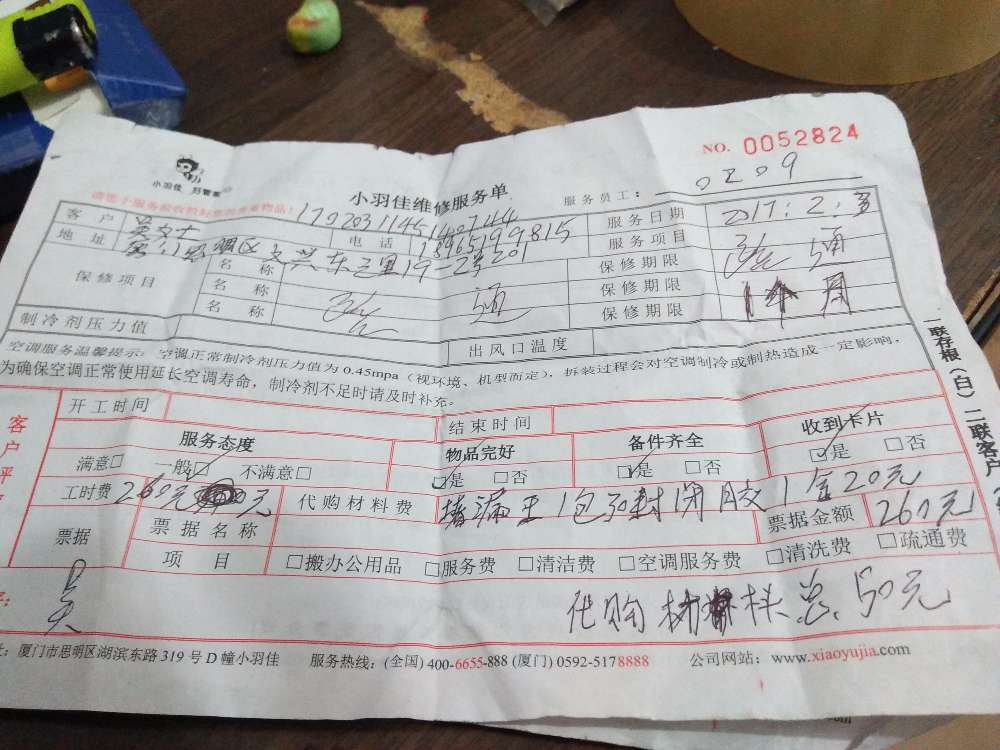 NO. 0052824
小羽佳 好管家
小羽佳维修服务单
服务员工: 0209
17020311451407 44
客户 吴女士 电话 18965199815 服务日期 2017:2:3
地址 思明区文兴东三里19-2号201 服务项目 疏通
保修项目 名称 保修期限
名称 疏通 保修期限
名称 保修期限 1个月
制冷剂压力值 出风口温度
空调服务温馨提示: 空调正常制冷剂压力值为 0.45mpa (视环境、机型而定), 拆装过程会对空调制冷或制热造成一定影响,
为确保空调正常使用延长空调寿命, 制冷剂不足时请及时补充。
开工时间 结束时间
服务态度 物品完好 备件齐全 收到卡片
满意□ 一般□ 不满意□ □是 □否 □是 □否 □是 □否
工时费 260元 元 代购材料费 堵漏王1包30 封闭胶1盒20元
票据 票据名称 票据金额 260元
项目 □搬办公用品 □服务费 □清洁费 □空调服务费 □清洗费 □疏通费
吴 代购材料 料总50元
厦门市思明区湖滨东路 319 号 D 幢小羽佳 服务热线: (全国) 400-6655-888 (厦门) 0592-5178888 公司网站: www.xiaoyujia.com
客户评
一联存根 (白) 二联客户